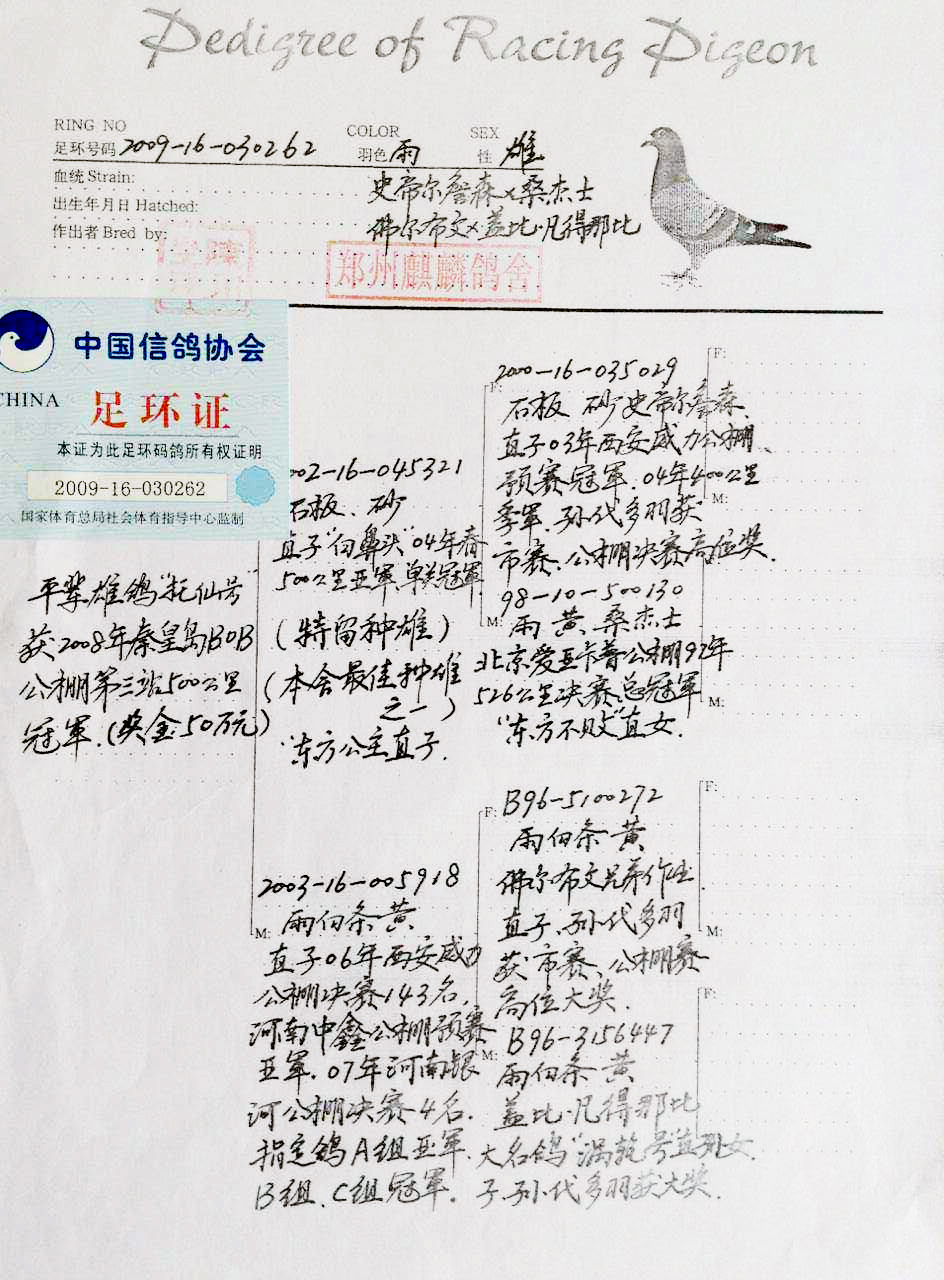 Pedigree of Racing Pigeon
RING NO
足环号码 2009-16-030262
COLOR
羽色 雨
SEX
性 雄
血统 Strain:
史帝尔詹森×桑杰士
出生年月日 Hatched:
佛尔布文×盖比·凡得那比
作出者 Bred by:
郑州麒麟鸽舍
中国信鸽协会
CHINA 足环证
本证为此足环码鸽所有权证明
2009-16-030262
国家体育总局社会体育指导中心监制
平辈雄鸽"托仙号"
获2008年秦皇岛BOB
公棚第三站500公里
冠军.(奖金50万元)
002-16-045321
石板、砂
直子"白鼻头"04年春
500公里亚军.单关冠军
(特留种雄)
(本舍最佳种雄
之一)
"东方公主直子.
M:
2003-16-005918
雨白条 黄
直子06年西安威力
公棚决赛143名.
河南中鑫公棚预赛
亚军.07年河南银
河公棚决赛4名.
指定鸽A组亚军.
B组、C组冠军.
F:
2000-16-035029
石板 砂 史帝尔詹森.
直子03年西安威力公棚
预赛冠军.04年400公里
季军.孙代多羽获
市赛、公棚决赛高位奖.
M:
98-10-500130
雨 黄 桑杰士
北京爱亚卡普公棚97年
526公里决赛总冠军
"东方不败"直女.
F:
B96-5100272
雨白条 黄
佛尔布文兄弟作出
直子、孙代多羽
获市赛、公棚赛
高位大奖.
M:
B96-3156447
雨白条 黄
盖比·凡得那比
大名鸽"涡轮号"直孙女.
子.孙代多羽获大奖.
F:
M:
M:
F:
M:
F: